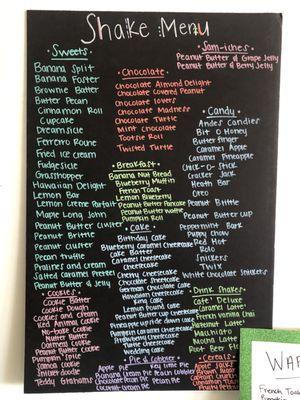 Shake Menu
Sweets
Banana Split
Banana Foster
Brownie Batter
Butter Pecan
Cinnamon Roll
Cupcake
Dreamsicle
Ferrero Roche
Fried Ice Cream
Fudgesicle
Grasshopper
Hawaiian Delight
Lemon Bar
Lemon Creme Parfait
Maple Long John
Peanut Butter Cluster
Peanut Brittle
Peanut Cluster
Pecan Truffle
Pralines and Cream
Salted Caramel Pretzel
Peanut Butter & Jelly
Cookies
Cookie Batter
Cookie Dough
Cookies and Cream
Iced Animal Cookie
No-bake Cookie
Nutter Butter
Oatmeal Cookie
Peanut Butter Cookie
Pumpkin Spice
Samoa Cookie
Snickerdoodle
Teddy Grahams
Chocolate
Chocolate Almond Delight
Chocolate Covered Peanut
Chocolate Lovers
Chocolate Madness
Chocolate Turtle
Mint Chocolate
Tootsie Roll
Twisted Turtle
Breakfast
Banana Nut Bread
Blueberry Muffin
French Toast
Lemon Blueberry
Peanut Butter Pancake
Peanut Butter Waffle
Pumpkin Bread
Cake
Birthday Cake
Blueberry Caramel Cheesecake
Cake Batter
Caramel Cheesecake
Cherry Cheesecake
Chocolate Cheesecake
German Chocolate Cake
Hawaiian Cheesecake
King Cake
Lemon Pound Cake
Peanut Butter Cup Cheesecake
Pineapple Up Side down Cake
Pumpkin Caramel Cheesecake
Strawberry Cheesecake
Turtle Cheesecake
Wedding Cake
Pie & Cobbler
Apple Pie
Banana Cream Pie
Chocolate Pecan Pie
Coconut Cream Pie
Key Lime Pie
Peach Cobbler
Pecan Pie
Sam-iches
Peanut Butter & Grape Jelly
Peanut Butter & Berry Jelly
Candy
Andes Candies
Bit O Honey
Butterfinger
Caramel Apple
Caramel Pineapple
Chick-O-Stick
Cracker Jack
Heath Bar
Oreo
Peanut Brittle
Peanut Butter Cup
Peppermint Bark
Puppy Chow
Red Hot
Rolo
Snickers
Twix
White Chocolate Snickers
Drink Shakes
Cafe' Deluxe
Caramel Latte
French Vanilla Chai
Hazelnut Latte
Macchiato
Mocha Latte
Root Beer
Cereals
Apple Jacks
French Toas